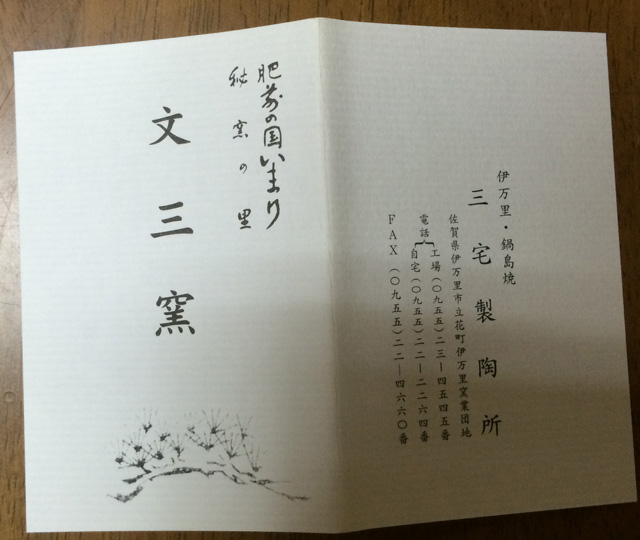 肥前の国いまり
秘窯の里
文三窯
伊万里・鍋島焼
三宅製陶所
佐賀県伊万里市立花町伊万里窯業団地
電話{工場(〇九五五)二三ー四五四五番
自宅(〇九五五)二二ー二二六四番
FAX(〇九五五)二二ー四六六〇番